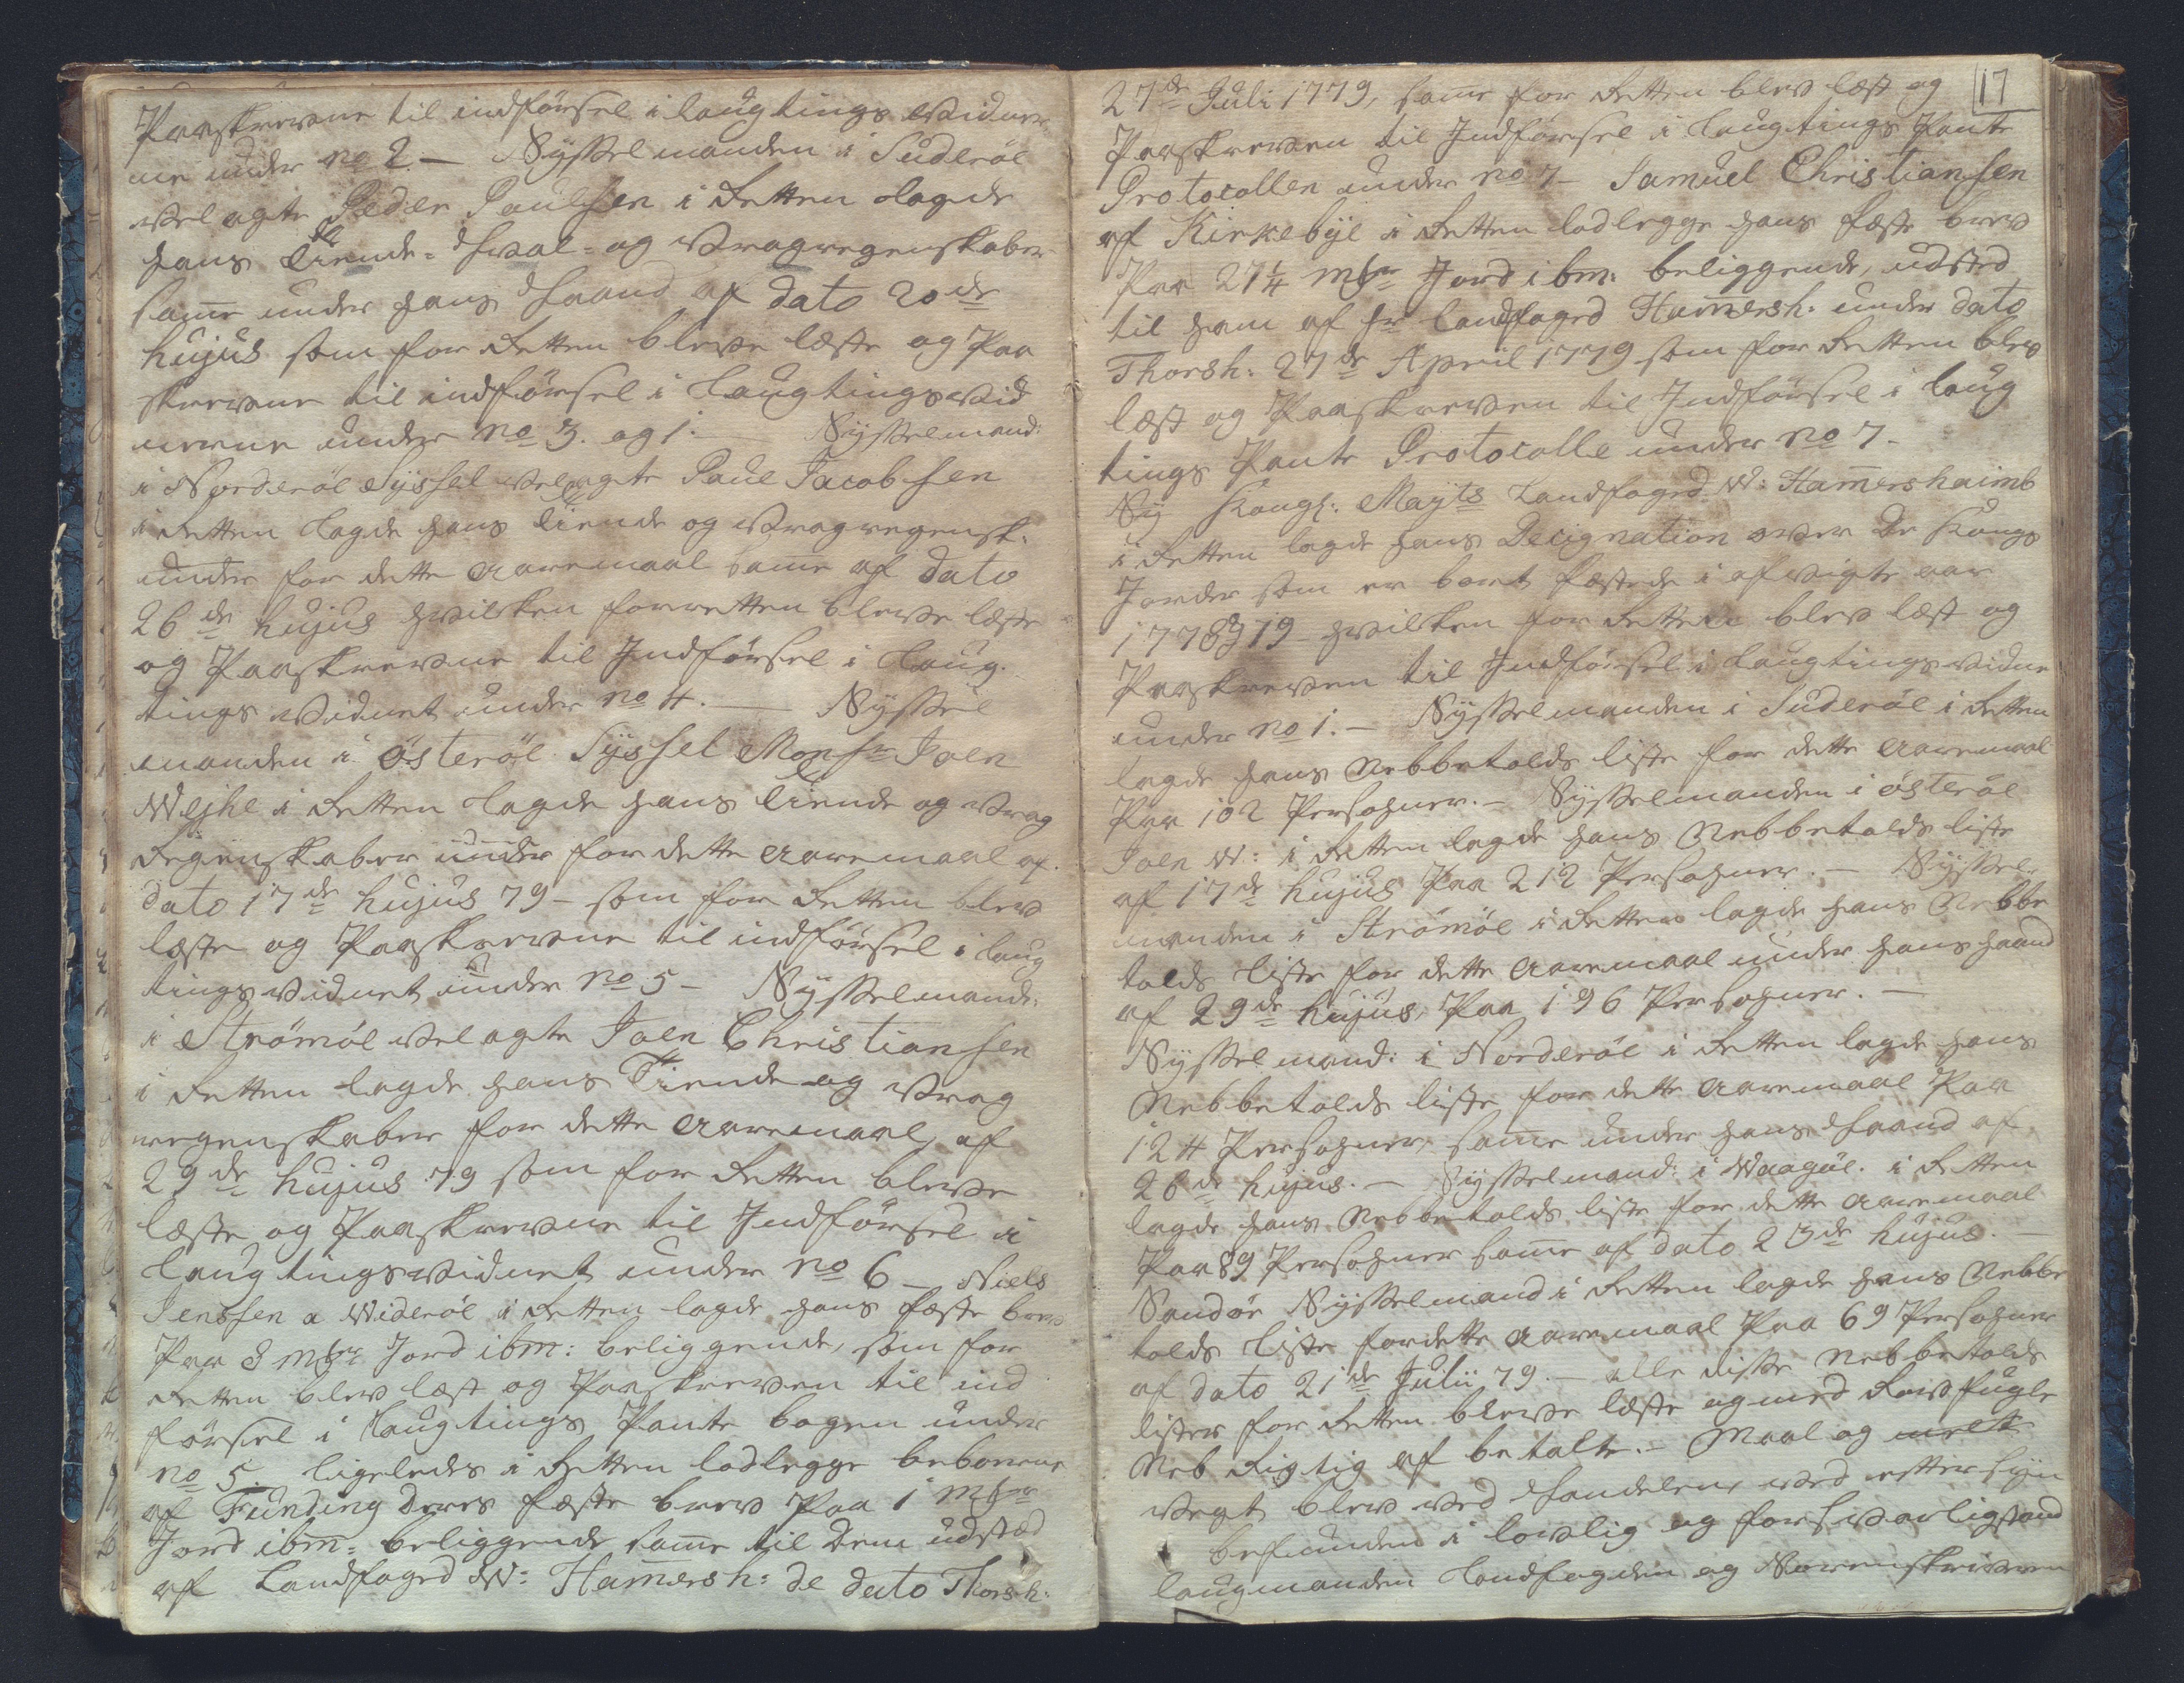 Paaskrevne til indförsel i laugtings Vidner
ne under No 2 – Sysselmanden i Suderöe
Velagte Peder Poulsen i Retten lagde
hans Tiende- Hval- og Vragregenskaber
same under hans Haand af dato 20de
hujus som for Retten bleve læste og Paa
skrevne til indförsel i Laugtingsvid
nerne under No 3. og 1. – Sysselmand:
i Norderöe Syssel Velagte Paul Jacobsen
i Retten lagde hans Tiende og Vragregensk:
under for dette Aaremaal same af dato
26de hujus hvilken for retten bleve læste
og Paaskrevne til Indförsel i Laug-
tings Vidnet under No 4. – Syssel
manden i Österöe Syssel Monsr Joen
Wejhe i Retten lagde hans Tiende og Vrag
Regenskaber under for dette Aaremaal af
dato 17de hujus 79 – som for Retten blev
læste og Paaskrevne til indförsel i laug
tings Vidnet under No 5 – Sysselmand:
i Strömöe Velagte Joen Christiansen
i Retten lagde hans Tiende og Vrag
regenskaber for dette Aaremaal, af
29de hujus 79 som for Retten bleve
læste og Paaskrevne til Indförsel i
Laugtingsvidnet under No 6 – Niels
Jensen a Wideröe i Retten lagde hans fæste brev
Paa 8 mkr Jord ibm: beliggende, som for
Retten blev læst og Paaskreven til ind
försel i Laugtings Pante bogen under
No 5. ligeledes i Retten lod legge beboerne
af Funding deres fæste brev Paa 1 mkr
Jord ibm: beliggende same til dem udstæd
af Landfoged W: Hamersh: de dato Thorsh:
17
27de Juli 1779, same for Retten blev læst og
Paaskreven til Indförsel i Laugtings Pante
Protocollen under No 7 – Samuel Christiansen
af Kirkebye i Retten lod legge hans fæste brev
Paa 27¼ mkr Jord ibm: beliggende, udsted
til ham af Hr Landfoged Hamersh: under dato
Thorsh: 27de April 1779 som for Retten blev
læst og Paaskreven til Indförsel i laug
tings Pante Protocolle under No 7 –
Kongl: Mayts Landfoged W: Hamershaimb
i Retten lagde hans Decignation over de Kongs
Jorder som er bort fæstede i afvigte aar
1778 og 79 – hvilken for Retten blev læst og
Paaskreven til Indförsel i Laugtingsvidne
under No 1. – Sysselmanden i Suderöe i Retten
lagde hans Nebbetolds liste for dette Aaremaal
Paa 102 Persohner. – Sysselmanden i Österöe
Joen W: i Retten lagde hans Nebbetolds liste
af 17de hujus Paa 212 Persohner. – Syssel-
manden i Strömöe i Retten lagde hans Nebbe
tolds liste for dette Aaremaal under hans haand
af 29de hujus, Paa 196 Persohner. –
Sysselmand: i Norderöe i Retten lagde hans
Nebbetolds liste for dette Aaremaal Paa
124 Persohner, same under hans Haand af
26de hujus. – Sysselmand: i Waagöe i Retten
lagde hans Nebbetolds liste for dette Aaremaal
Paa 89 Persohner same af dato 23de hujus. –
Sandöe Sysselmand i Retten lagde hans Nebbe
tolds liste for dette Aaremaal Paa 69 Persohner
af dato 21de Julii 79. – alle disse Nebbetolds
lister for Retten bleve læste og med Rovfugle
Neb Rigtig af betalte. – Maal og
Vegt blev ved Handelen, ved eftersyn
befunden i lovlig og forsvarlig stand
laugmanden Landfogden og Sorenskriveren